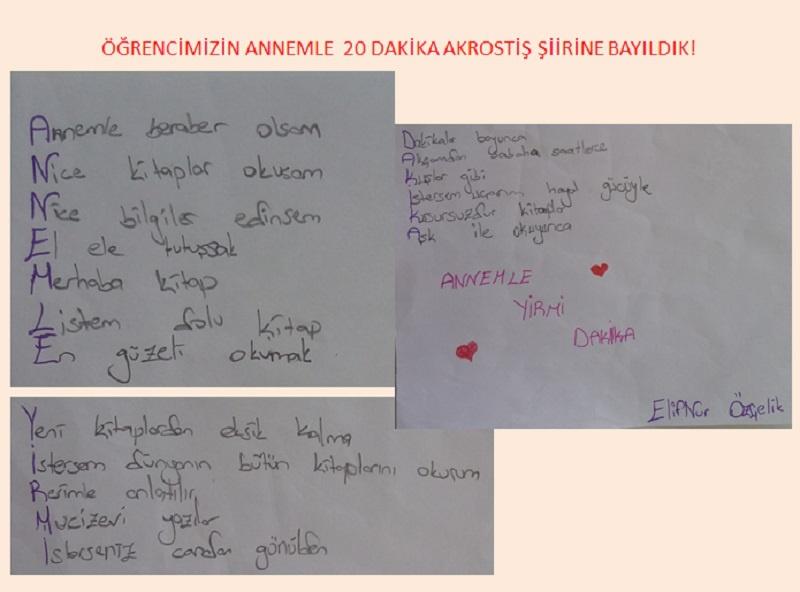 ÖĞRENCİMİZİN ANNEMLE 20 DAKİKA AKROSTİŞ ŞİİRİNE BAYILDIK!
Annemle beraber olsam
Nice kitaplar okusam
Nice bilgiler edinsem
El ele tutuşsak
Merhaba kitap
Listem dolu kitap
En güzeli okumak
Yeni kitaplardan eksik kalma
İstersem dünyanın bütün kitaplarını okurum
Resimle anlatılır
Mucizevi yazılar
İsterseniz candan gönülden
Dakikalar boyunca
Akşamdan sabaha saatlerce
Kuşlar gibi
İstersem uçarım hayal gücüyle
Kusursuzdur kitaplar
Aşk ile okuyunca
ANNEMLE
YİRMİ
DAKİKA
ElifNur Özçelik